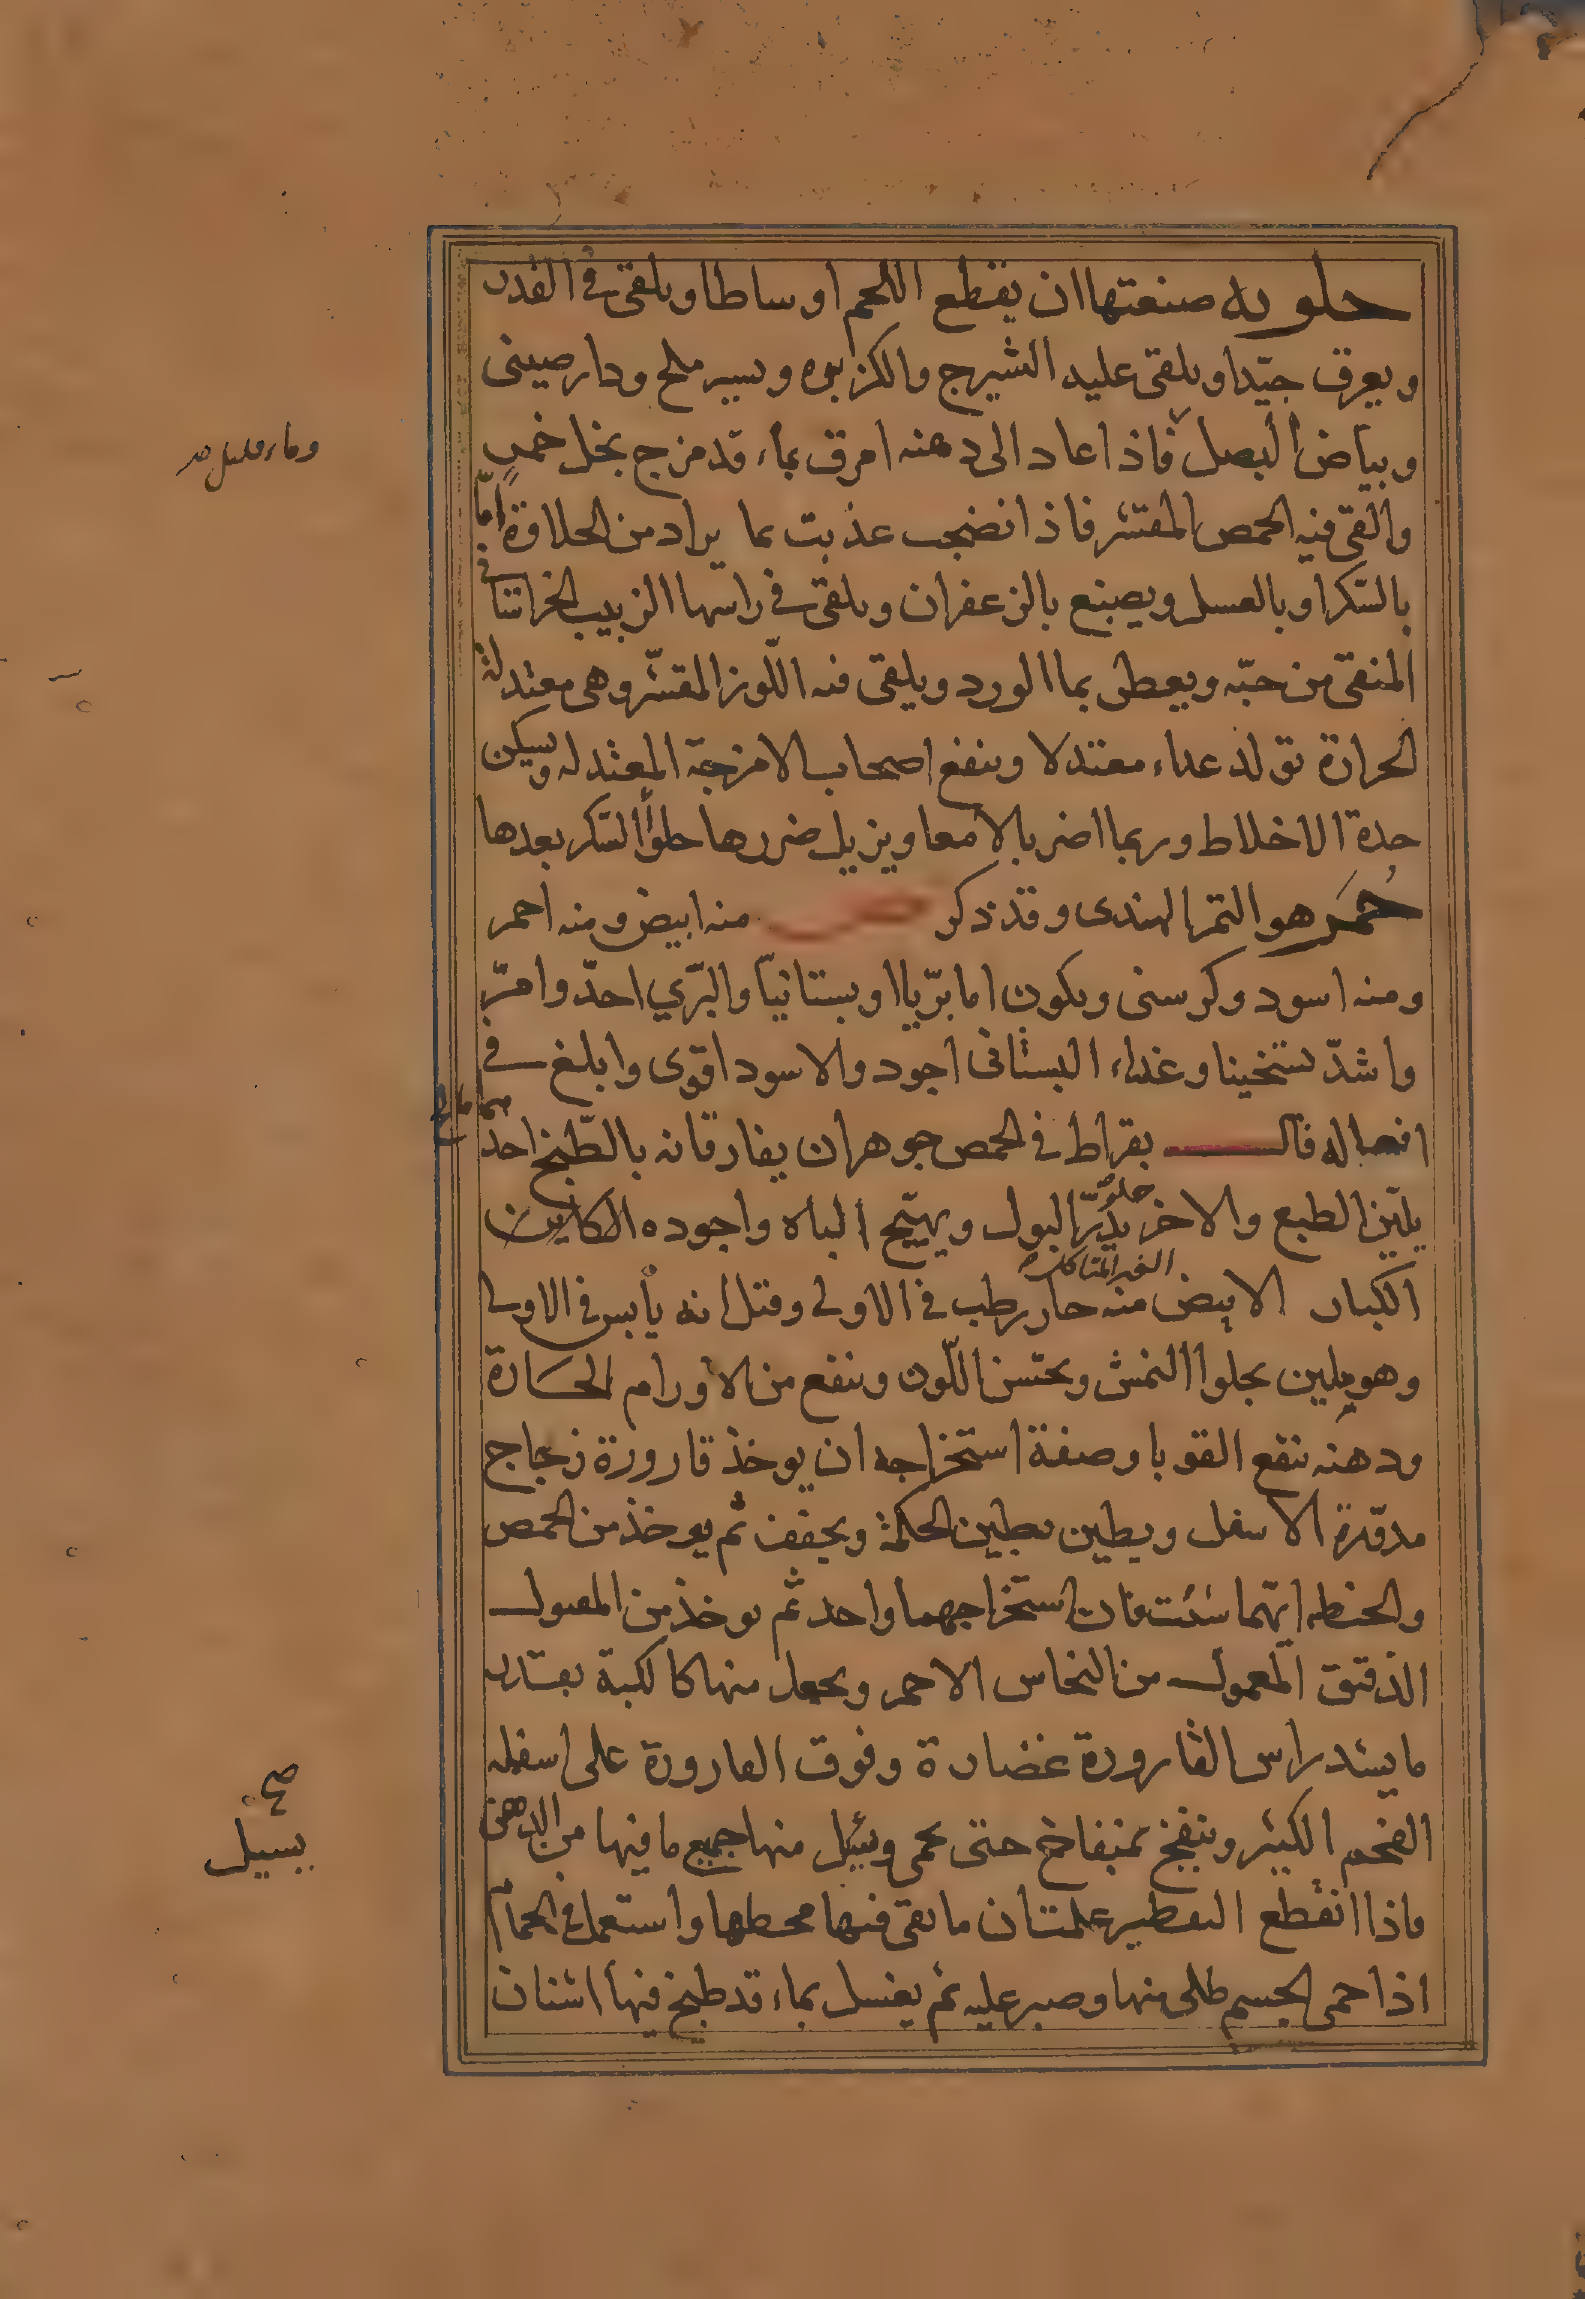 حلويه صنعتها ان يقطع اللحم اوساطا ويلقى في القدر
ويعرق جيّدا ويلقى عليه الشيرج والكزبره ويسير ملح ودارصينى
وبياض البصل فاذا عاد الى دهنه امرق بماء قد مزج بخل خمرٍ
وماء قليل
والقى فيه الحمص المقشر فاذا نضجت عذبت بما يراد من الحلاوة امّا
بالسّكر او بالعسل ويصبغ بالزعفران ويلقى في راسها الزبيب الخراسانى
المنقى من حبّه ويعطر بما الورد ويلقى فيه اللّوز المقشّر وهى معتدلة
الحرارة تولد غداء معتدلا وينفع اصحاب الامزجة المعتدله ويسكن
حدة الاخلاط وربما اضر بالامعا ويزيل ضررها حلوا السّكر بعدها
حُمَر هو التمر الهندى وقد ذكر منه ابيض ومنه احمر
ومنه اسود وكرسنى ويكون اما برّيا او بستانيّا والبرّي احدّ وامرّ
واشدّ تسخينا وغداء البستانى اجود والاسود اقوى وابلغ في
افعاله قال بقراط في الحمص جوهران يفارقانه بالطّبخ احدهما مالح
يليّن الطبع والاخر حلو يدرّ البول ويهيّج الباه واجوده الكاين
الكبار الغير المتاكل الابيض منه حار رطب في الاولى وقيل انه يابس في الاولى
وهو يلين يجلوا النمش ويحسّن اللّون وينفع من الاورام الحَارة
ودهنه ينفع القوبا وصفة استخراجه ان يوخذ قارورة زجاج
مدوّرة الاسفل ويطين بطين الحكمة ويجفف ثم يوخذ من الحمص
والحنطه ايّهما شئت فان استخراجهما واحد ثم يوخذ من المفتول
الدقيق المعمول من النحاس الاحمر ويجعل منها كالكبة بقدر
ما يسد راس القارورة غضارة وفوق القارورة على اسفله
صح
الفحم الكثير وينفخ بمنفاخ حتى يحمى ويسيل منها جميع ما فيها من الدهن
يسيل
فاذا انقطع التقطير علمت ان ما بقى فيها محطها واستعمل في الحمام
اذا حمى الجسم طلى منها وصبر عليه ثم يغسل بماء قد طبخ فيها اشنان